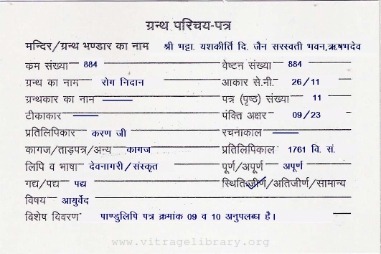 ग्रन्थ परिचय-पत्र
मन्दिर/ग्रन्थ भण्डार का नाम श्री भट्टा. यशकीर्ति दि. जैन सरस्वती भवन,ऋषभदेव
क्रम संख्या 884 वेष्टन संख्या 884
ग्रन्थ का नाम रोग निदान आकार से.मी. 26/11
ग्रन्थकार का नाम पत्र (पृष्ठ) संख्या 11
टीकाकार पंक्ति अक्षर 09/23
प्रतिलिपिकार करण जी रचनाकाल
कागज/ताड़पत्र/अन्य कागज प्रतिलिपिकाल 1761 वि. सं.
लिपि व भाषा देवनागरी/संस्कृत पूर्ण/अपूर्ण अपूर्ण
गद्य/पद्य पद्य स्थिति-जीर्ण/अतिजीर्ण/सामान्य
विषय आयुर्वेद
विशेष विवरण पाण्डुलिपि पत्र क्रमांक 09 व 10 अनुपलब्ध है।
www.vitragelibrary.org